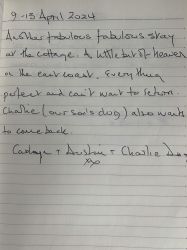 9-13 April 2024
Another fabulous fabulous stay
at the cottage. A little bit of heaven
on the east coast. Everything
perfect and can't want to return.
Charlie (our son's dog) also wants
to come back.
+ Austin + Charlie Dog
xxx